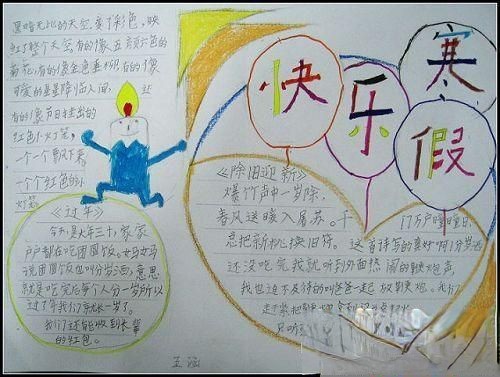 黑暗无比的天空变了彩色,映
红了整个天空,有的像五颜六色的
菊花,有的像金色垂柳,有的像
可爱的星星降临人间,还
有的像节日挂出的
红色小灯笼,
一个一个飘下来
一个个红色的小
灯笼
《过年》
今天,是大年三十,家家
户户都在吃团圆饭。妈妈
说团圆饭也叫分岁酒,意思
就是吃完后每个人分一岁,所以
过了年我们就长一岁了。
我们还能收到长辈
的红包。
快乐寒假
《除旧迎新》
爆竹声中一岁除,
春风送暖入屠苏。千
门万户曈曈日,
总把新桃换旧符。这首诗写的真好啊!分岁酒
还没吃完我就听到外面热闹的鞭炮声,
我也迫不及待的叫爸爸一起放鞭炮。我们
赶紧把
只听
王涵